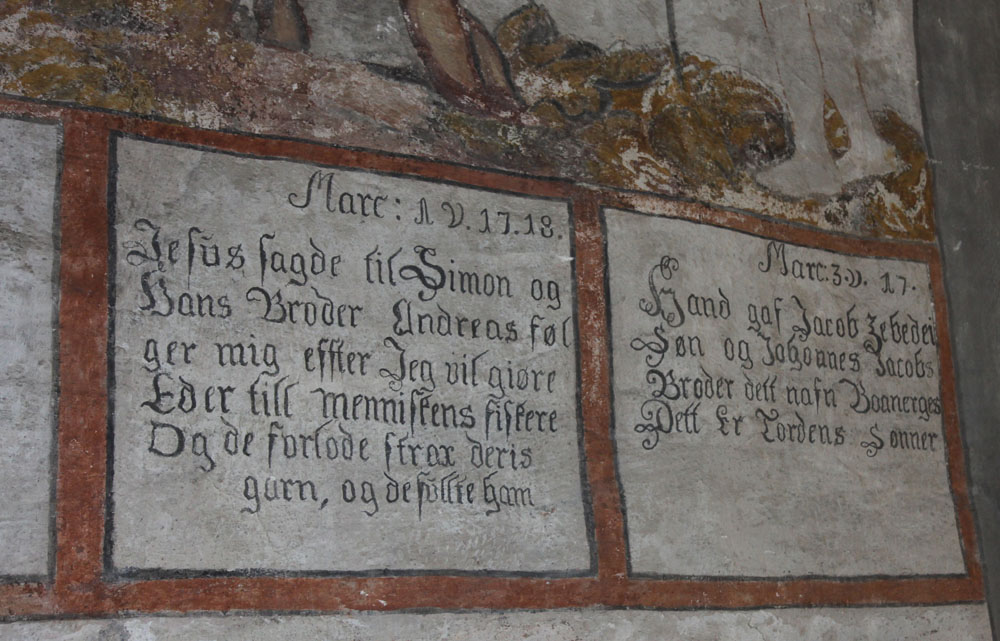 Marc: 1 V. 17. 18.
Jesus sagde til Simon og
Hans Broder Andreas føl
ger mig effter Jeg vil giøre
Eder till menniskens fiskere
Og de forlode strax deris
garn, og de føllte ham
Marc: 3 V. 17.
Hand gaf Jacob Zebedei
Søn og Johannes Jacobs
Broder dett nafn Boanerges
Dett Er Tordens Sønner